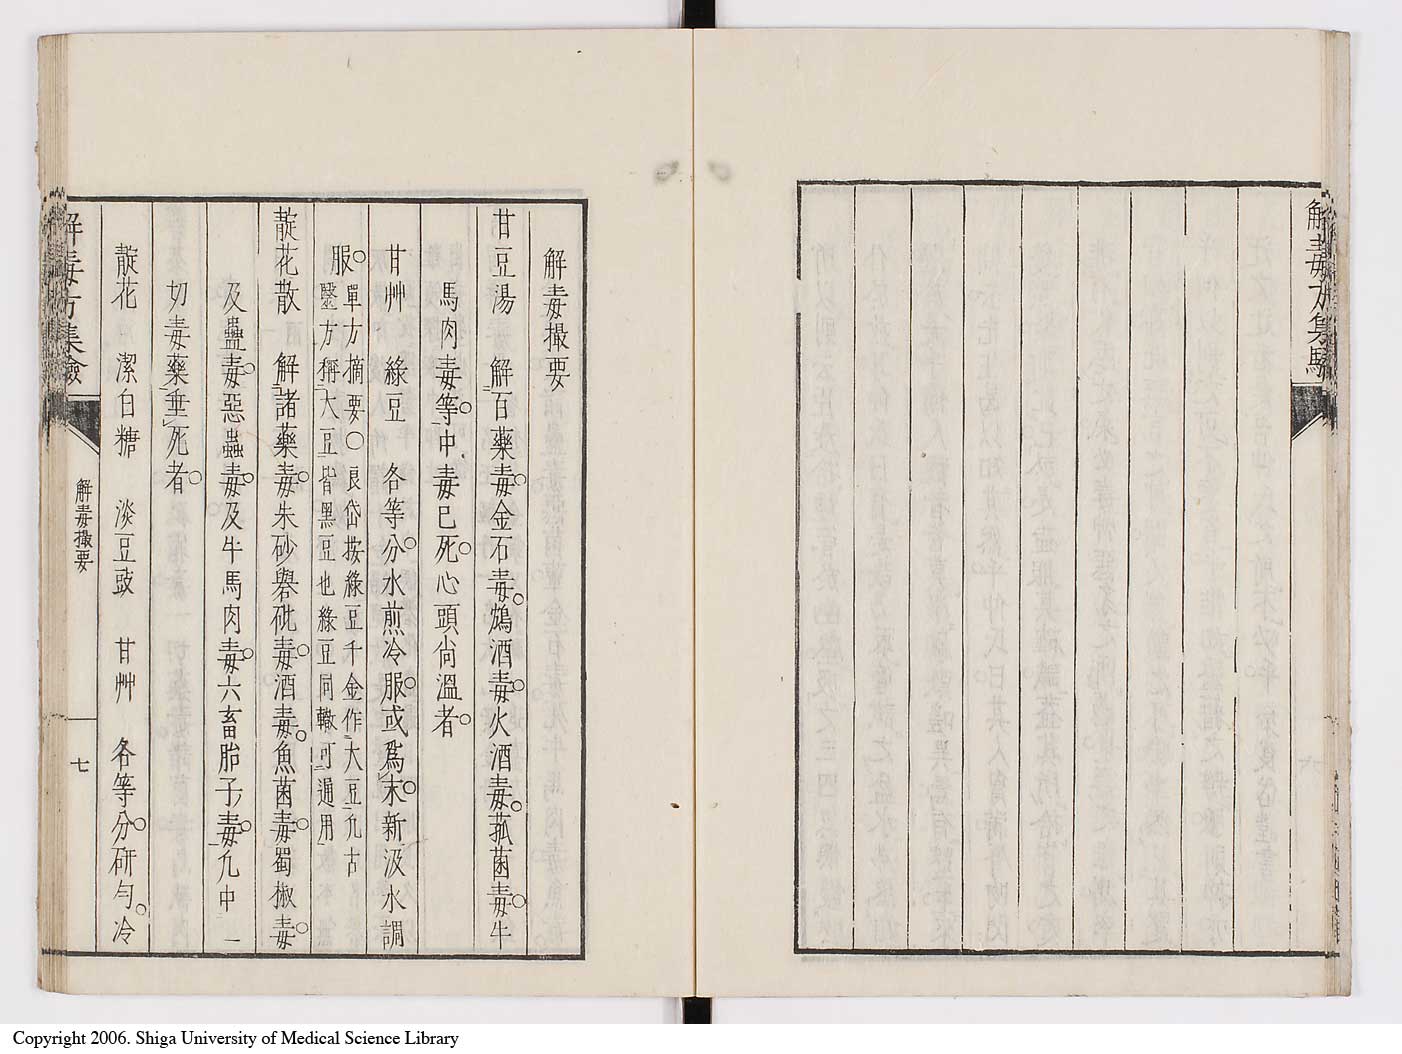 解毒方集驗
解毒撮要
甘豆湯　解百藥毒。金石毒。鴆酒毒。火酒毒。菰菌毒。牛
馬肉毒等。中毒已死。心頭尚溫者。
甘艸　綠豆　各等分。水煎冷服。或爲末。新汲水調
服。單方摘要○良岱按綠豆千金作大豆凢古
毉方稱大豆皆黑豆也綠豆同轍可通用
靛花散　解諸藥毒。朱砂礜砒毒。酒毒。魚菌毒。蜀椒毒。
及蠱毒。惡蟲毒。及牛馬肉毒。六畜胎子毒。凢中一
切毒藥垂死者。
靛花　潔白糖　淡豆豉　甘艸　各等分。研勻。冷
解毒方集驗　解毒撮要　七
Copyright 2006. Shiga University of Medical Science Library